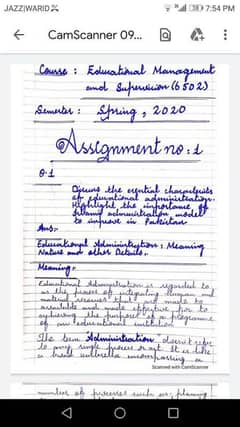 JAZZ|WARID
7:54 PM
CamScanner 09...
Course : Educational Management
and Supervision (6502)
Semester : Spring, 2020
Assignment no : 1
Q.1
Discuss the essential
of educational administration.
Highlight the importance of
administration model
to improve in Pakistan
Ans:-
Educational Administration : Meaning
Nature and other Details.
Meaning:-
Educational Administration is regarded to
as the process of integrating human and
material that are made to
available and made effective for to
achieving the purpose of a programme
of an educational institution
The term "Administration" doesn't refer
to any single process or act. It is like
a broad umbrella encompassing a
Scanned with CamScanner
number of processes such as: planning